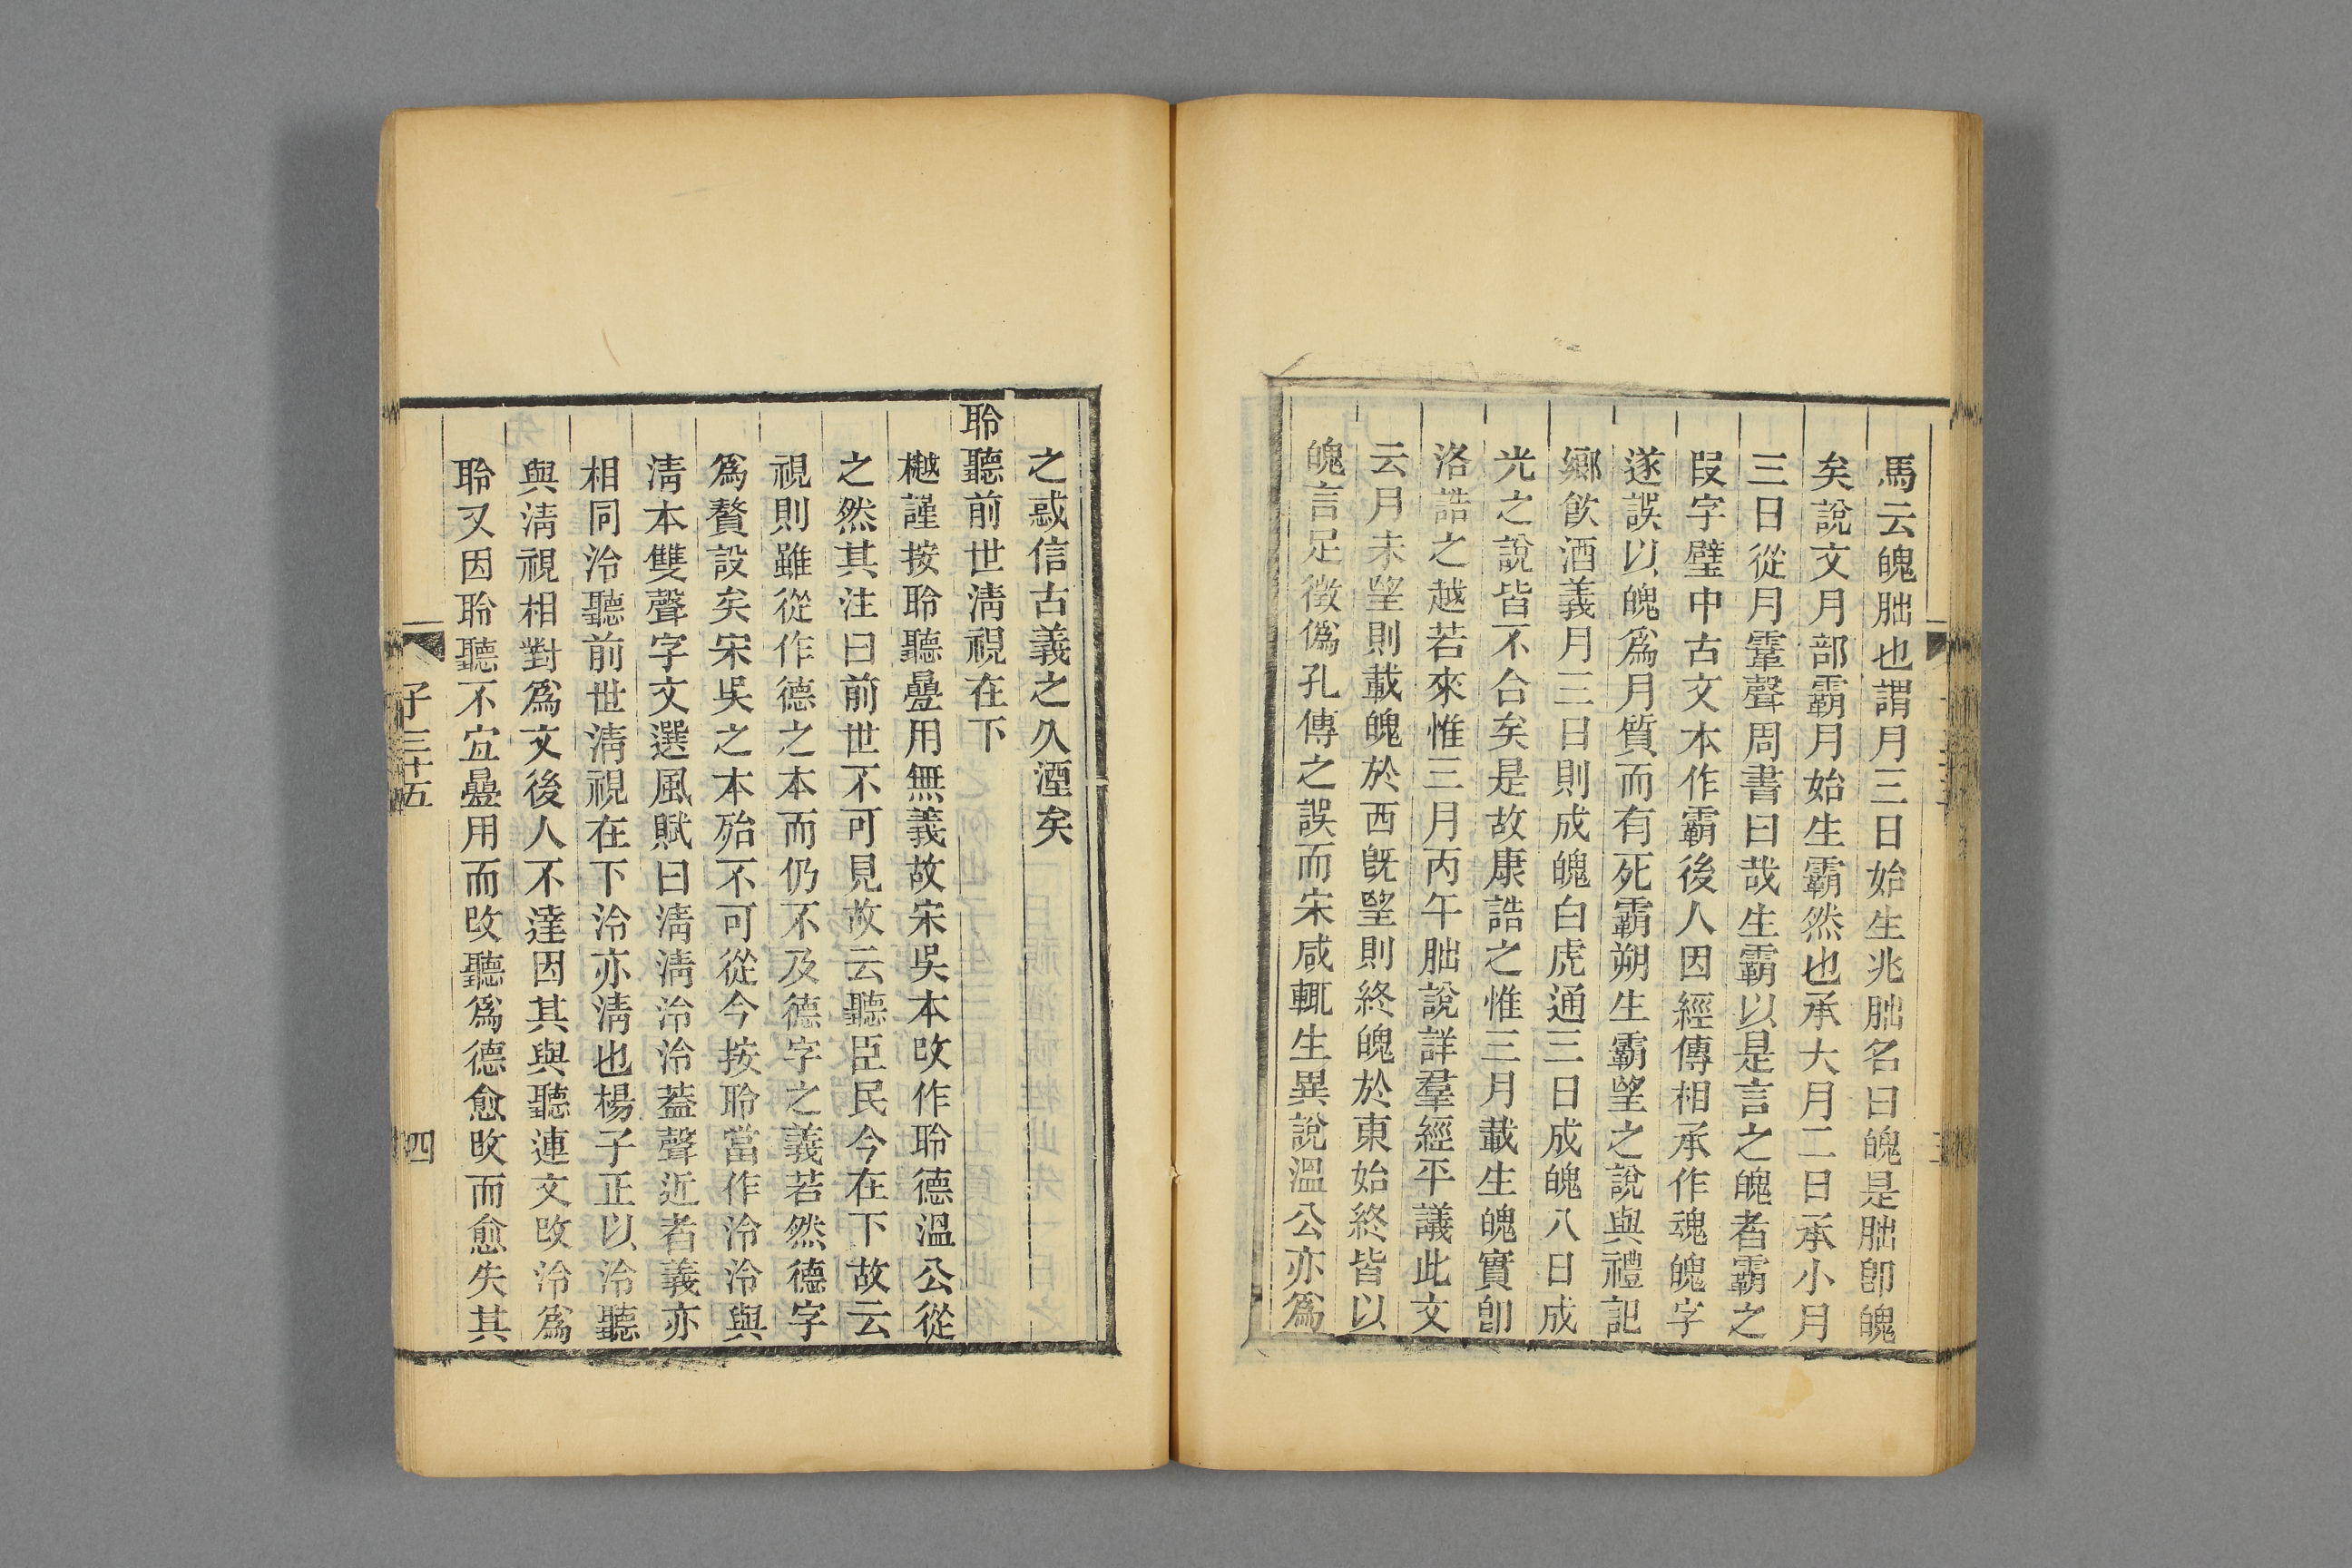 馬云魄朏也謂月三日始生兆朏名曰魄是朏卽魄
矣說文月部霸月始生霸然也承大月二日承小月
三日從月䨣聲周書曰哉生霸以是言之魄者霸之
叚字壁中古文本作霸後人因經傳相承作魂魄字
遂誤以魄爲月質而有死霸朔生霸望之說與禮記
鄉飲酒義月三日則成魄白虎通三日成魄八日成
光之說皆不合矣是故康誥之惟三月載生魄實卽
洛誥之越若來惟三月丙午朏說詳羣經平議此文
云月未望則載魄於西旣望則終魄於東始終皆以
魄言足徵僞孔傳之誤而宋咸輒生異說溫公亦爲
之惑信古義之久湮矣
聆聽前世淸視在下
樾謹按聆聽曡用無義故宋吳本改作聆德溫公從
之然其注曰前世不可見故云聽臣民今在下故云
視則雖從作德之本而仍不及德字之義若然德字
爲贅設矣宋吳之本殆不可從今按聆當作泠泠與
淸本雙聲字文選風賦曰淸淸泠泠葢聲近者義亦
相同泠聽前世淸視在下泠亦淸也楊子正以泠聽
與淸視相對爲文後人不達因其與聽連文改泠爲
聆又因聆聽不宜曡用而改聽爲德愈改而愈失其
子三十五
四